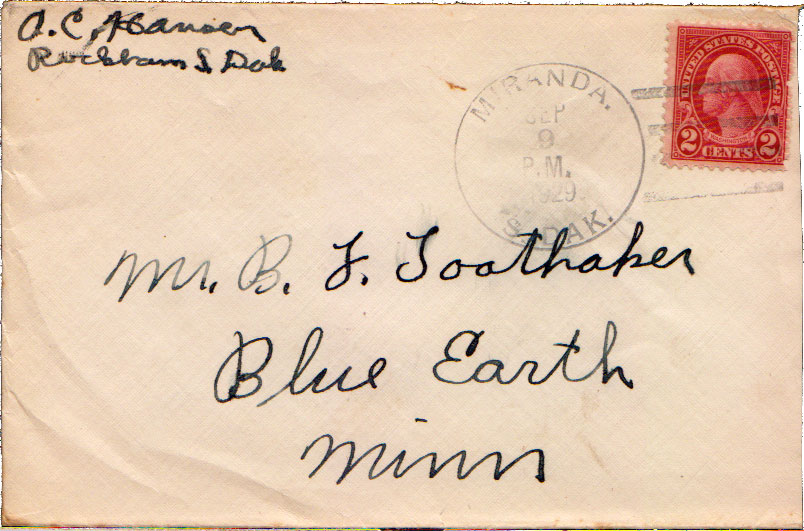 A. C. Hansen
Rockham S. Dak
MIRANDA.
SEP
9
P.M.
1929
S. DAK.
UNITED STATES POSTAGE
WASHINGTON
2 CENTS 2
Mr. B. F. Toothaker
Blue Earth
Minn